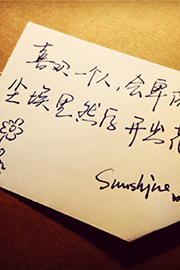 喜欢一个人，会卑
尘埃里然后开出花
Sunshine